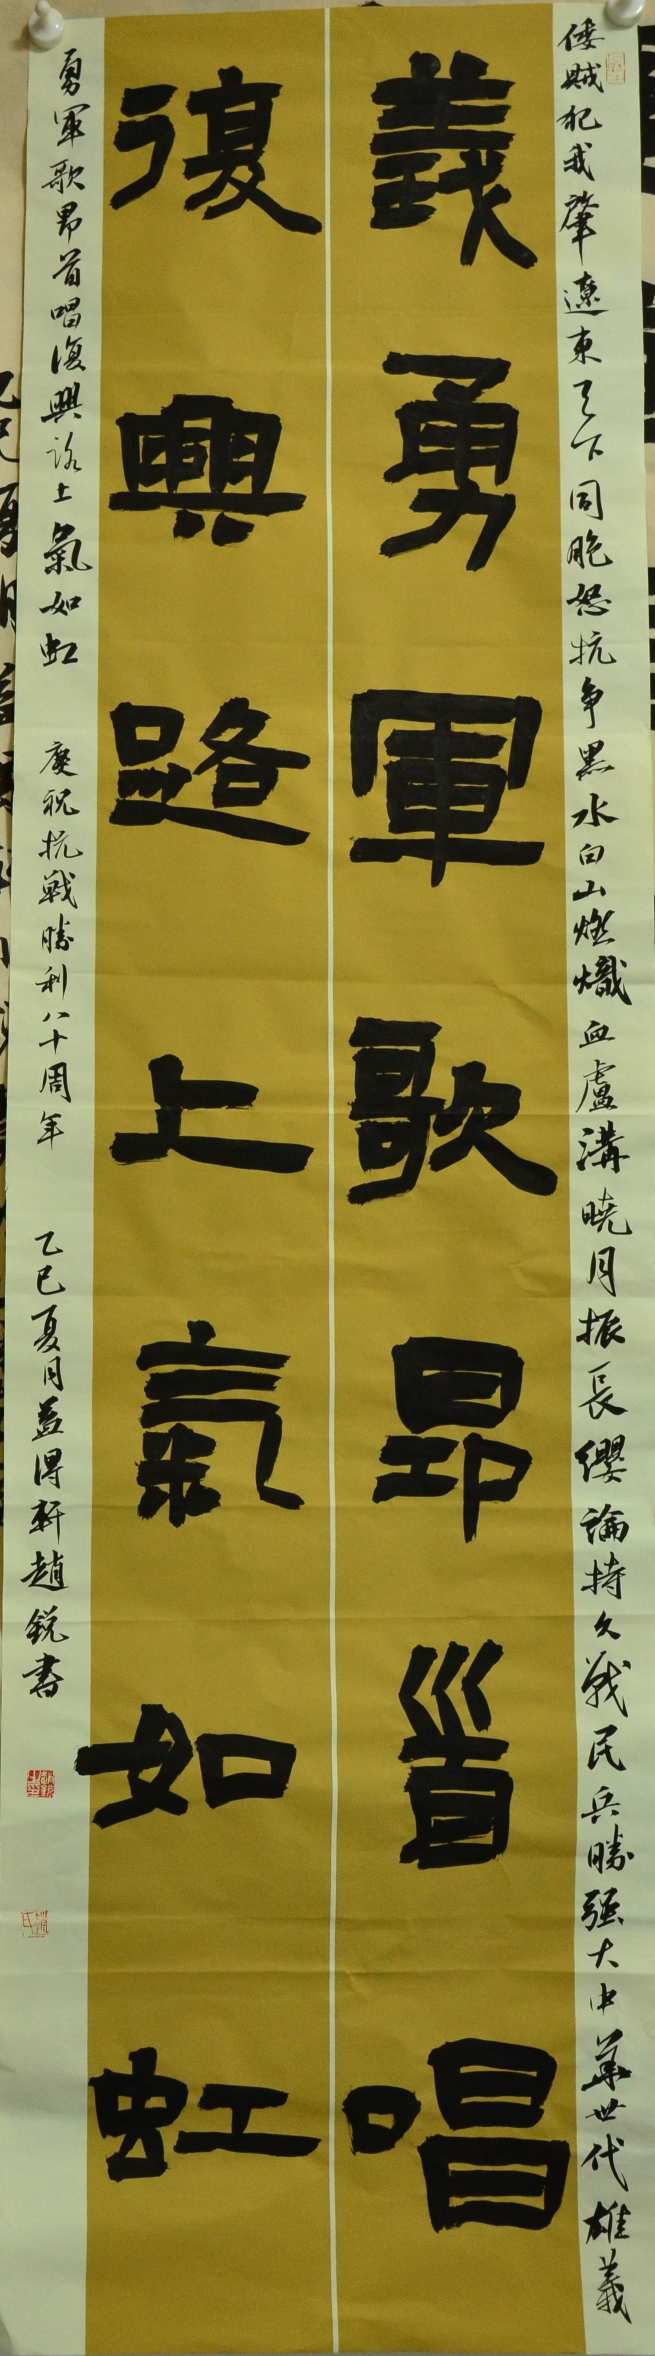 倭贼犯我肇遼東天下同胞怒抗争黑水白山燃熾血盧溝曉月振長纓論持久戰民兵勝强大中華世代雄義
義勇軍歌昂首唱
復興路上氣如虹
勇軍歌昂首唱復興路上氣如虹
慶祝抗戰勝利八十周年
乙巳夏月益得軒趙銳書